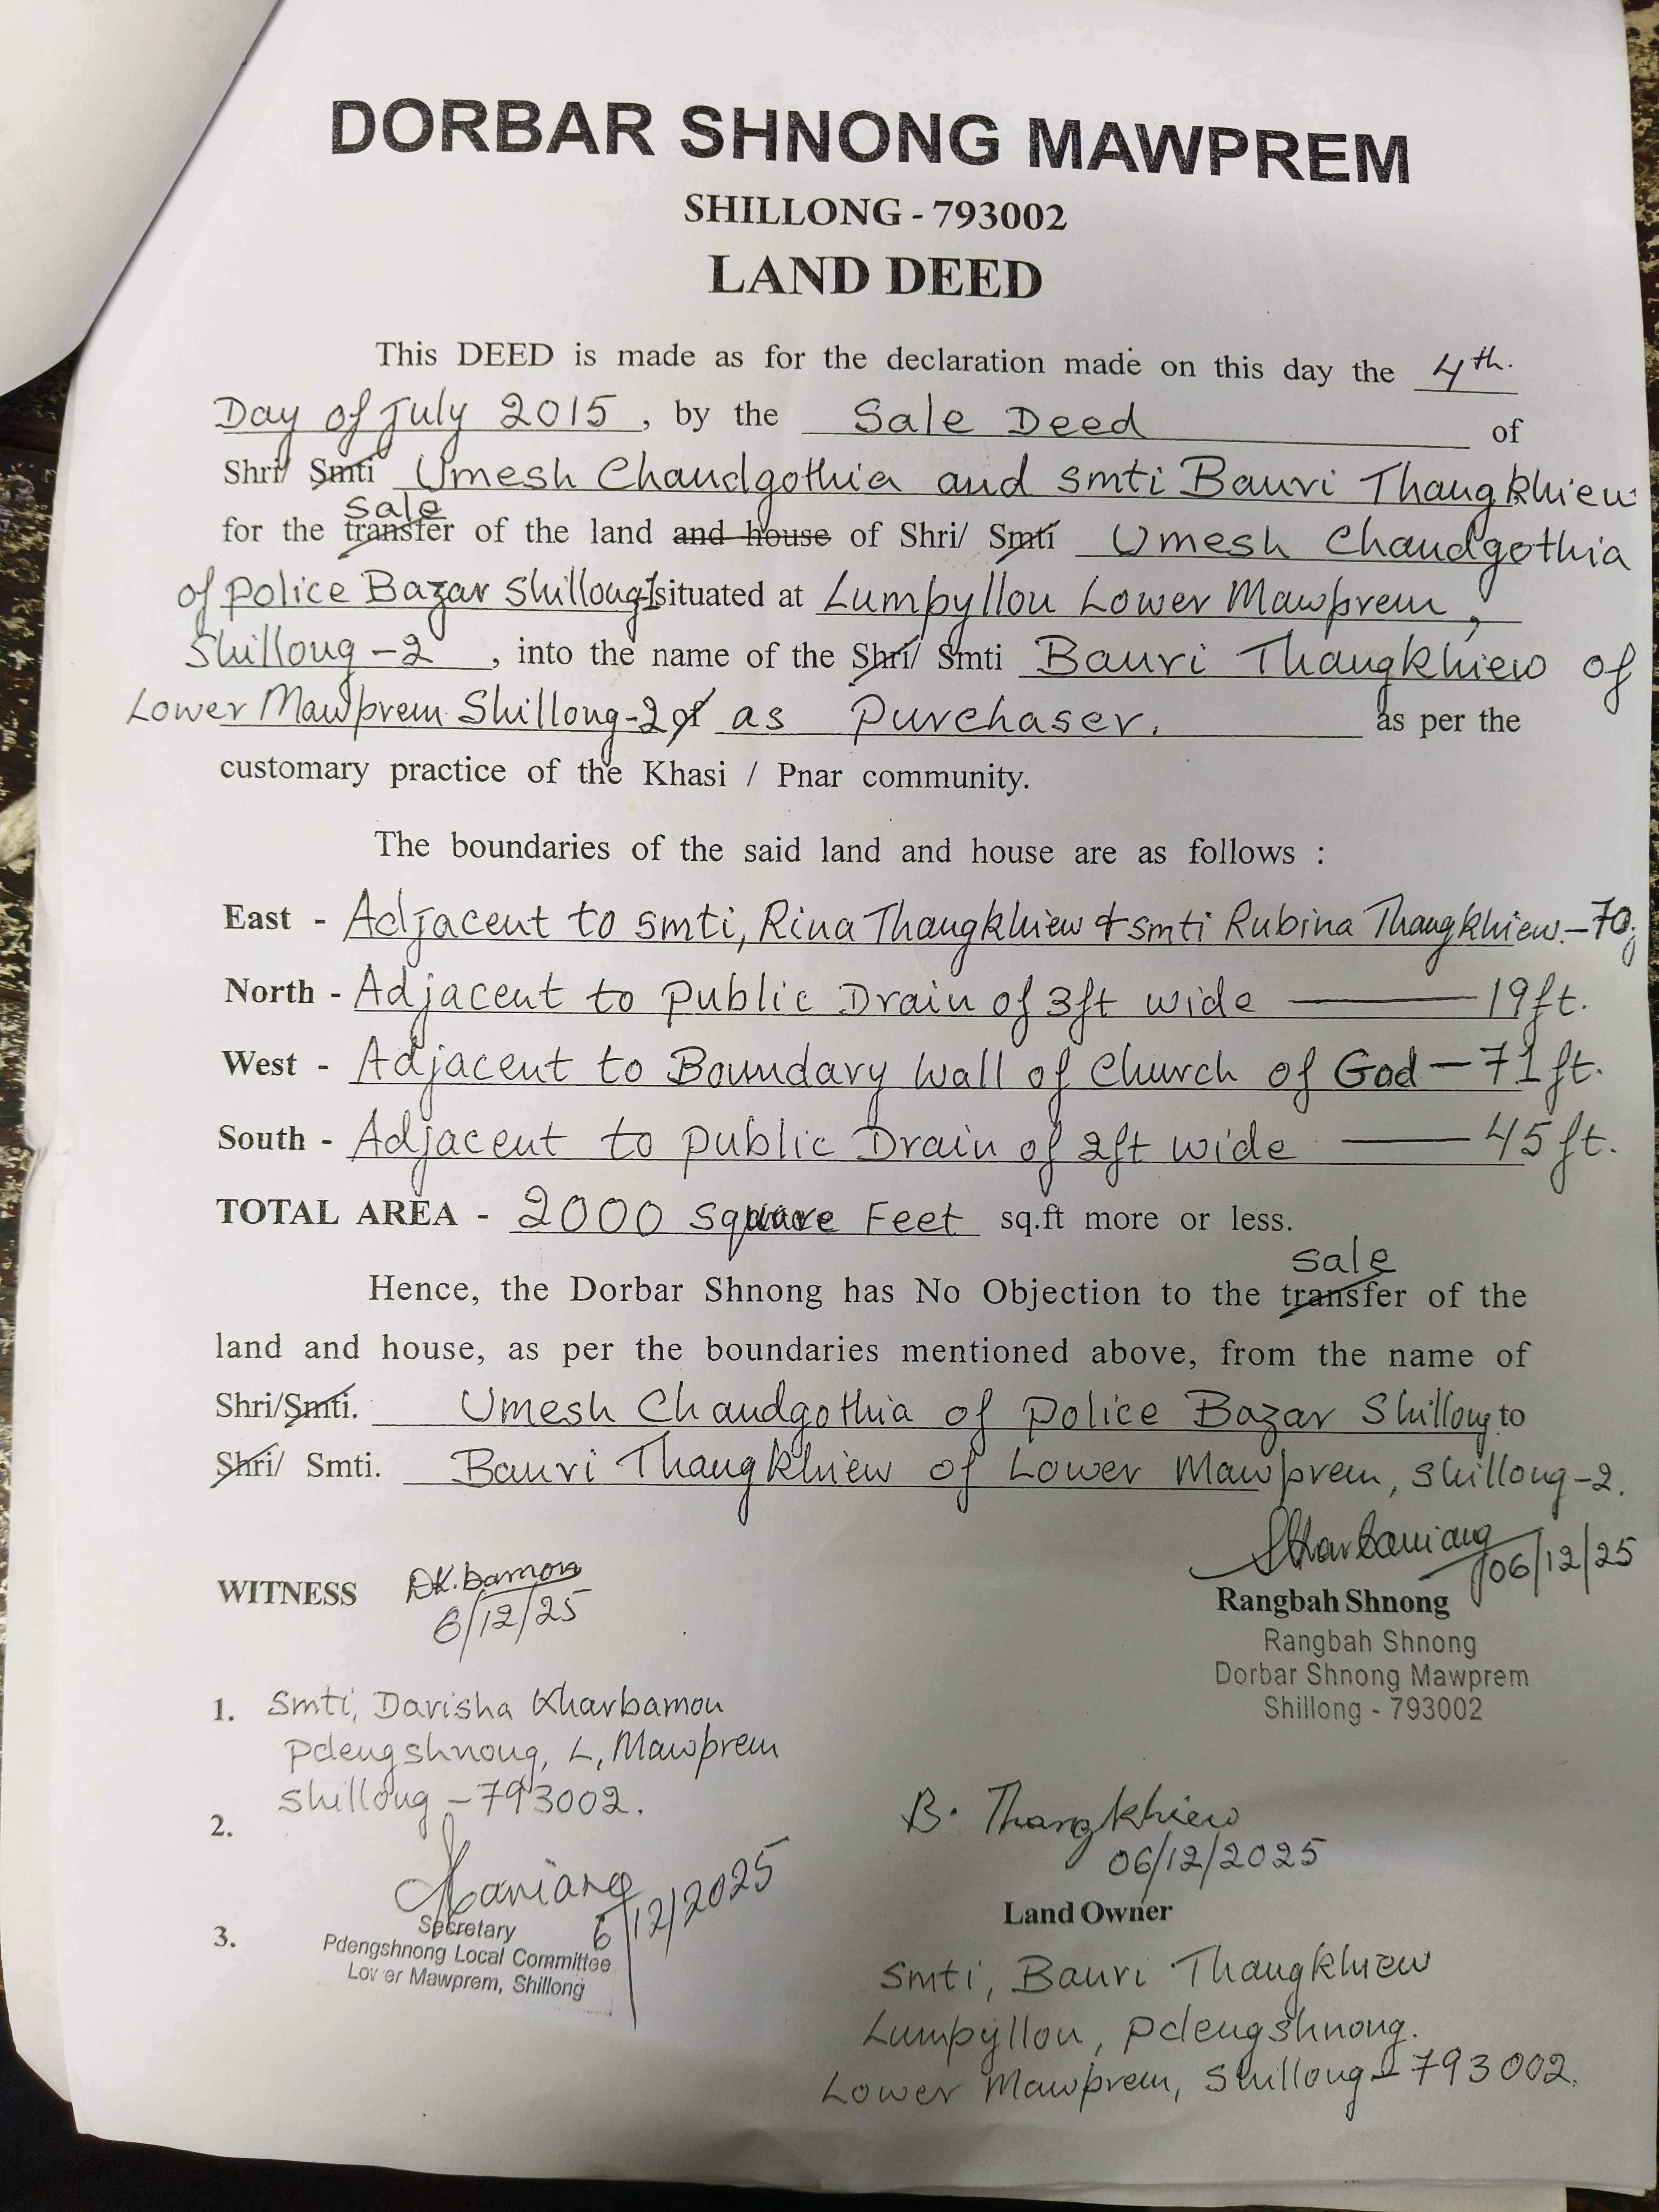 DORBAR SHNONG MAWPREM
SHILLONG - 793002
LAND DEED
This DEED is made as for the declaration made on this day the 4th.
Day of July 2015, by the Sale Deed of
Shri/ Smti Umesh Chaudgothia and smti Bauri Thangkhiew
sale
for the transfer of the land and house of Shri/ Smti Umesh Chaudgothia
of Police Bazar Shillong-1 situated at Lumpyllon Lower Mawprem,
Shillong-2, into the name of the Shri/ Smti Bauri Thangkhiew of
Lower Mawprem Shillong-2 of as Purchaser. as per the
customary practice of the Khasi / Pnar community.
The boundaries of the said land and house are as follows :
East - Adjacent to smti, Rina Thangkhiew & smti Rubina Thangkhiew.-70
North - Adjacent to public Drain of 3ft wide — 19ft.
West - Adjacent to Boundary Wall of Church of God — 71ft.
South - Adjacent to public Drain of 2ft wide — 45ft.
TOTAL AREA - 2000 square Feet sq.ft more or less.
sale
Hence, the Dorbar Shnong has No Objection to the transfer of the
land and house, as per the boundaries mentioned above, from the name of
Shri/Smti. Umesh Chaudgothia of Police Bazar Shillong to
Shri/ Smti. Bauri Thangkhiew of Lower Mawprem, Shillong-2.
06/12/25
WITNESS DK.bamon
6/12/25
Rangbah Shnong
Rangbah Shnong
Dorbar Shnong Mawprem
Shillong - 793002
1. Smti, Darisha Kharbamon
Pdengshnong, L, Mawprem
Shillong - 793002.
2.
B. Thangkhiew
06/12/2025
Land Owner
6/12/2025
3. Secretary
Pdengshnong Local Committee
Lower Mawprem, Shillong
Smti, Bauri Thangkhiew
Lumpyllon, Pdengshnong.
Lower Mawprem, Shillong - 793002.